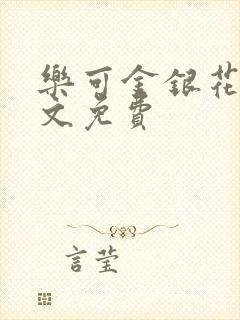 樂可金銀花
文免費
言莹